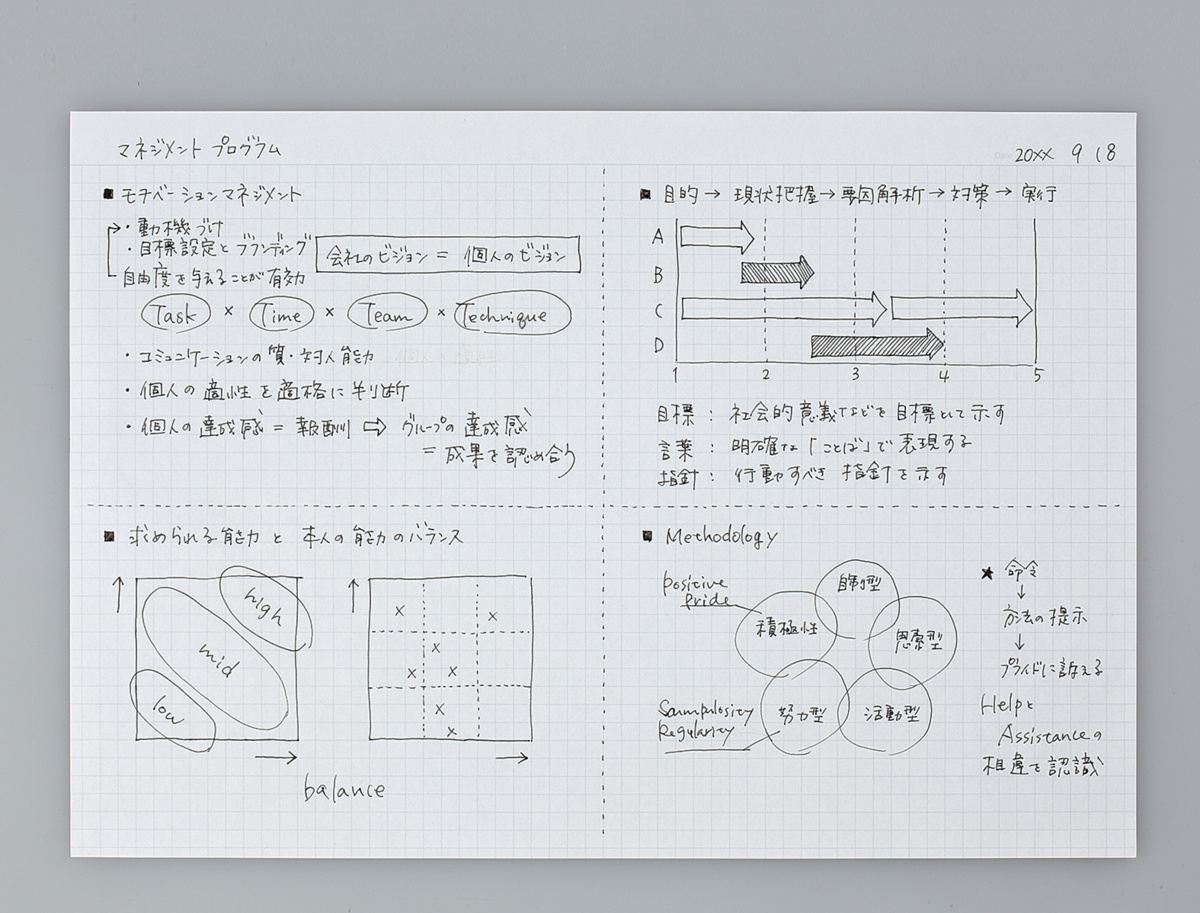 マネジメント プログラム
20XX 9 18
■ モチベーションマネジメント
・動機づけ
・目標設定とブランディング
自由度を与えることが有効
会社のビジョン = 個人のビジョン
Task × Time × Team × Technique
・コミュニケーションの質・対人能力
・個人の適性を適格に判断
・個人の達成感 = 報酬 ⇨ グループの達成感
= 成果を認め合う
■ 目的 → 現状把握 → 要因解析 → 対策 → 実行
A
B
C
D
1 2 3 4 5
目標: 社会的意義などを目標として示す
言葉: 明確な「ことば」で表現する
指針: 行動すべき指針を示す
■ 求められる能力と本人の能力のバランス
high
mid
low
× ×
×
× ×
×
×
balance
■ Methodology
positive
pride
自制型
積極性
思索型
努力型
活動型
Regularity
★ 命令
↓
方法の提示
↓
プライドに訴える
Helpと
Assistanceの
相違を認識